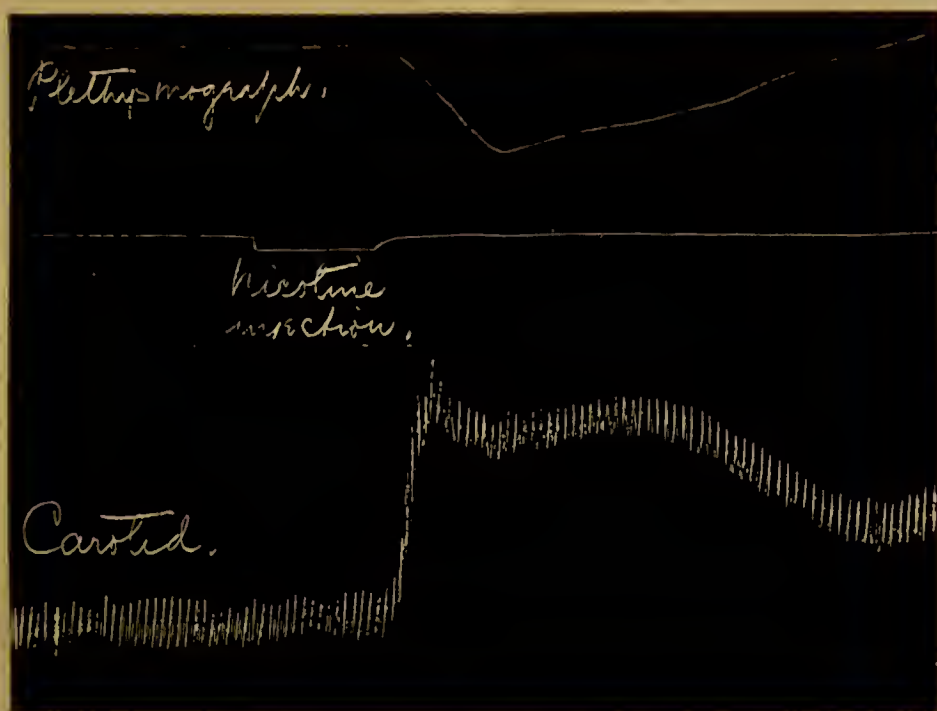 Plethysmograph.
Nicotine
injection.
Carotid.